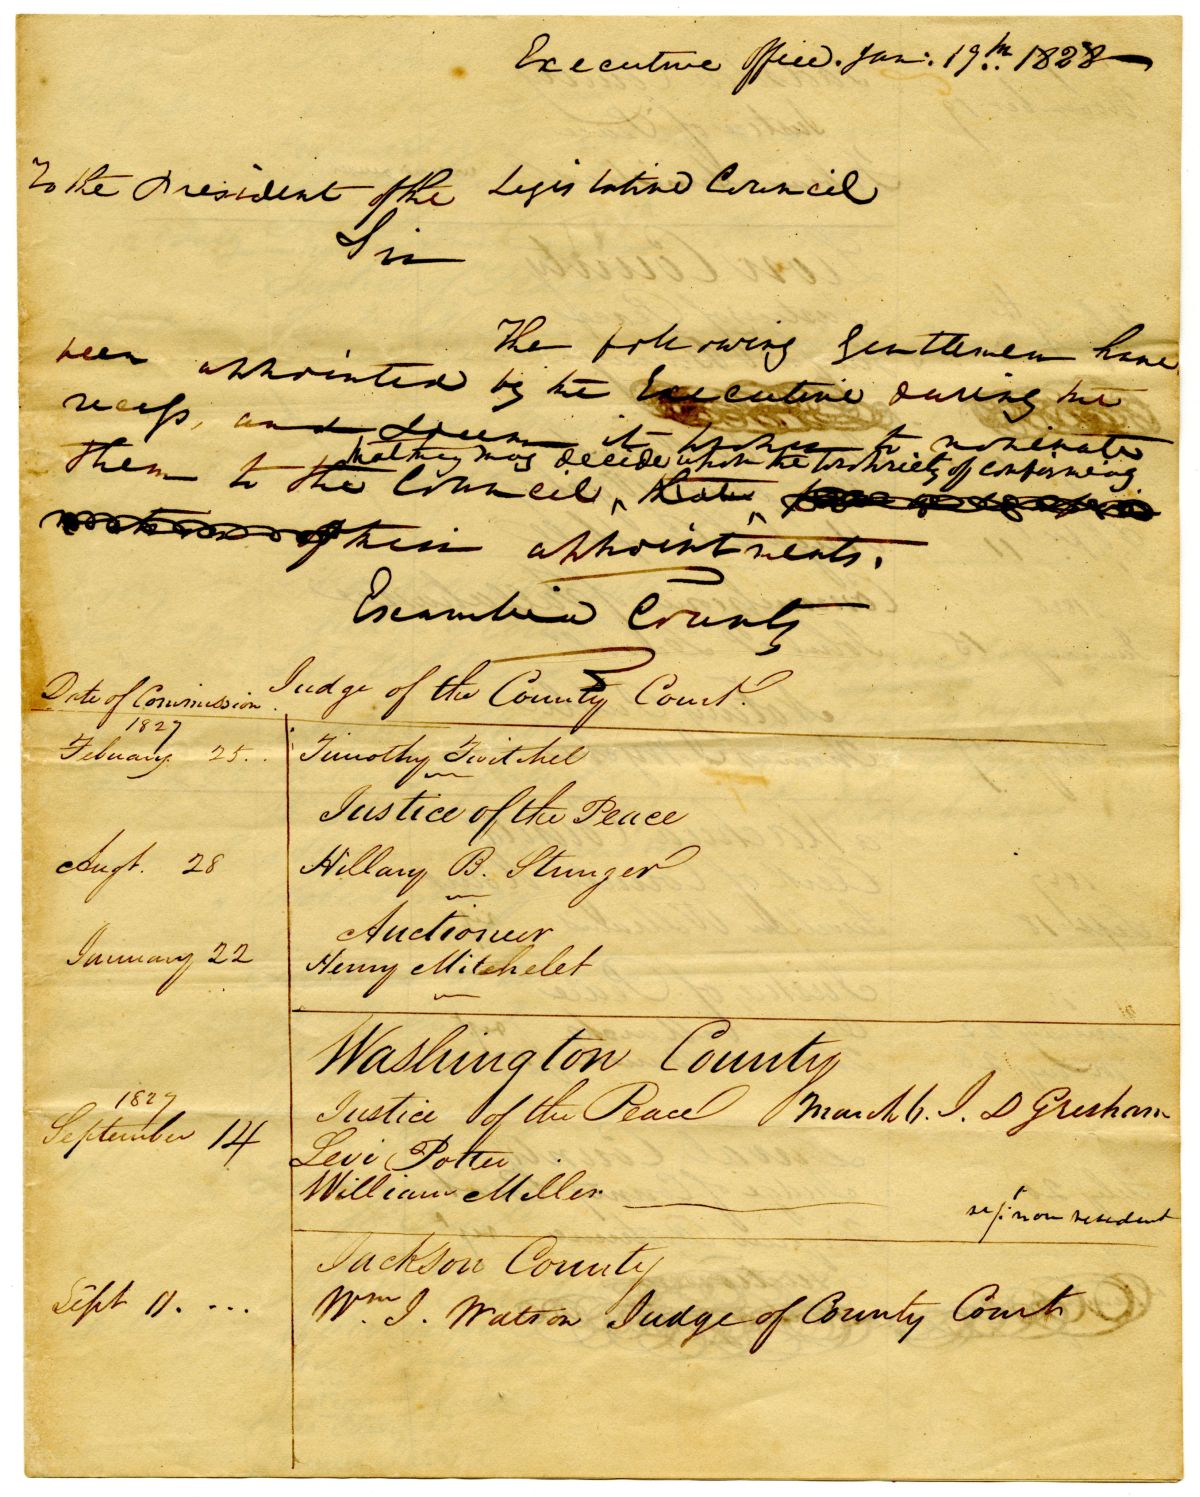 Executive Office. Jan: 19th. 1828
To the President of the Legislative Council
Sir
The following Gentlemen have
been appointed by the Executive during the
recess, and deem it proper to nominate
that they may decide upon the propriety of confirming
them to the Council,
their appointments.
Escambia County
Date of Commission. Judge of the County Court.
1827
February 25. Timothy Twitchel
Justice of the Peace
Augt. 28 Hillary B. Stringer
Auctioneer
January 22 Henry Mitchelet
Washington County
1827
Justice of the Peace March 6. I. D Gresham
September 14
Levi Potter
William Miller
non resident
Jackson County
Sept 11. ... Wm. I. Watson Judge of County Court